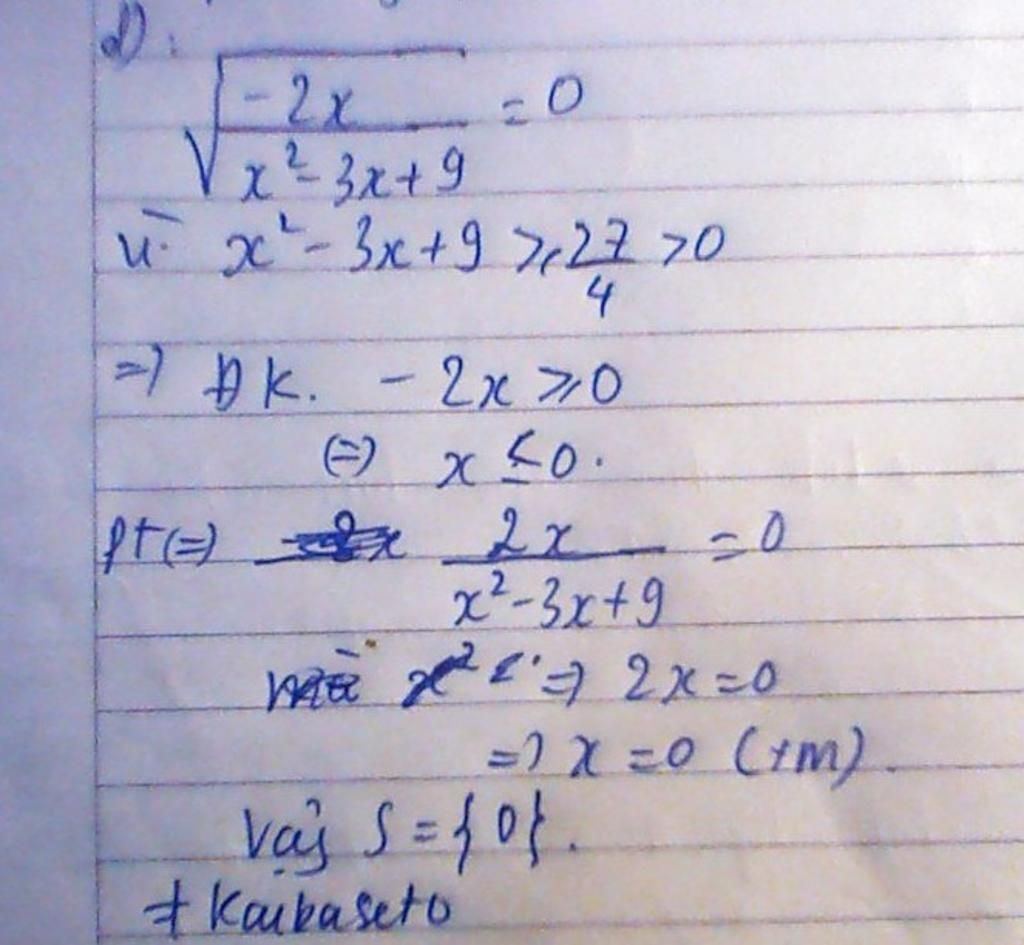 d):
√(-2x / (x² - 3x + 9)) = 0
vì x² - 3x + 9 ≥ 27/4 > 0
=> ĐK. -2x ≥ 0
(=) x ≤ 0.
pt (=) 2x / (x² - 3x + 9) = 0
=> 2x = 0
=> x = 0 (tm).
Vậy S = {0}.
# Kaibaseto